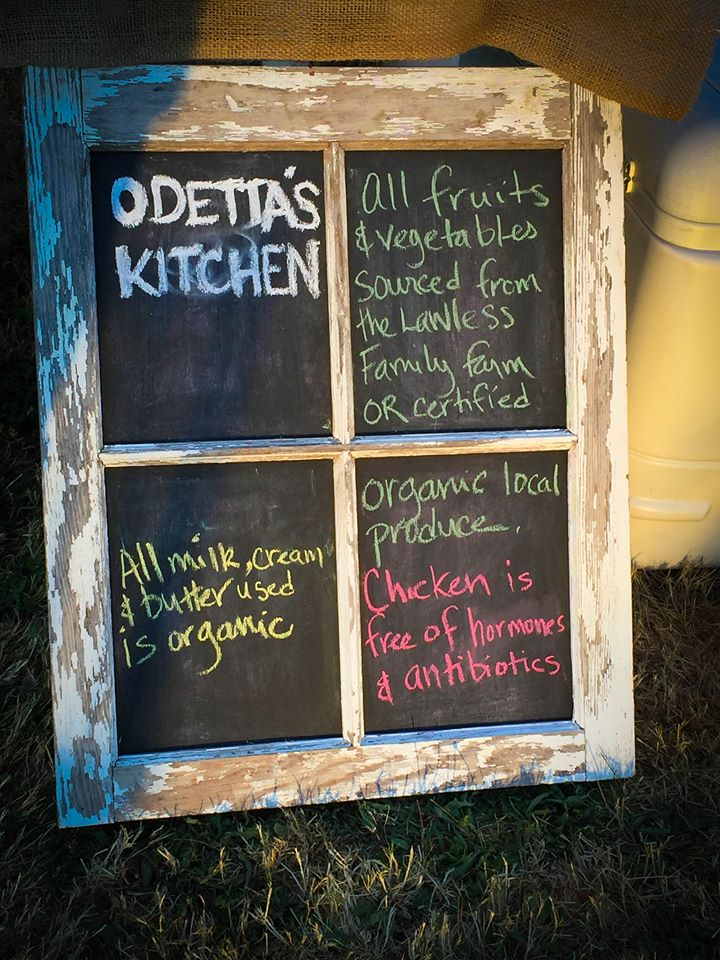 ODETTA'S
KITCHEN
All fruits
& vegetables
sourced from
the Lawless
Family farm
OR certified
organic local
produce.
All milk, cream
& butter used
is organic
Chicken is
free of hormones
& antibiotics